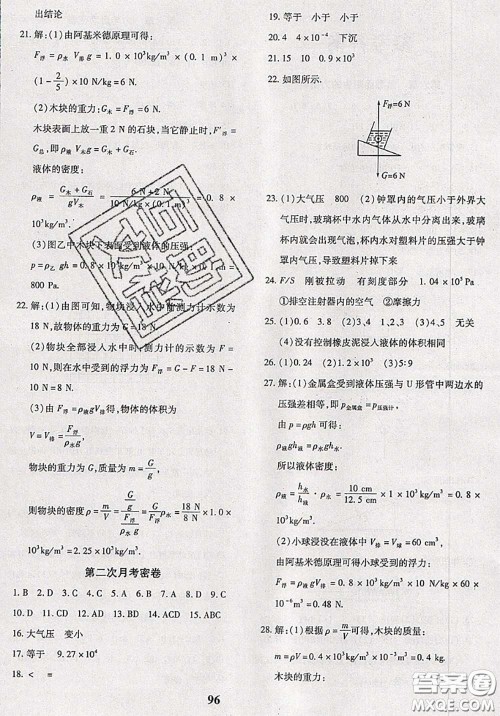 出结论
21.解:(1)由阿基米德原理可得:
F浮=ρ水 V排 g=1.0×10³kg/m³×10×10⁻⁴m³×
(1-2/5)×10 N/kg=6 N
(2)木块的重力:G木=F浮=6 N
木块表面上放一重2 N的石块,当它静止时,F'浮=
G木+G石
即ρ液Vg=G木+G石
液体的密度:
ρ液=(G木+G石)/gV=
kg/m³=0.8×10³kg/m³
(3)图乙中木块下表面受到液体的压强:
p=ρ液gh=0.8×10³kg/m³×10 N/kg×
800 Pa.
22.解:(1)由图可知,物块浸入水中前测力计示数为
18 N,故物体的重力为18 N.
(2)物块全部浸入水中时,测力计的示数为F=
10 N,则在水中受到的浮力为F浮=G-F=18 N-
10 N=8 N.
(3)由F浮=ρ水gV排得,物块的体积为
V=V排=F浮/ρ水g,
物块的重力为G,质量为m=G/g,
则物块的密度ρ=m/V=(G/g)/(F浮/ρ水g)=G/F浮 ρ水=18 N/8 N×1.0×
10³kg/m³=2.25×10³kg/m³
第二次月考密卷
1.B 2.D 3.B 4.A 5.B 6.C 7.A 8.D 9.D
10.D 11.CD 12.AD 13.BD 14.ACD 15.ABC
16.大气压 变小
17.等于 9.27×10⁴
18.< =
19.等于 小于 小于
20.4 4×10⁻⁴ 下沉
21.15 10 0.9×10³
22.如图所示.
F浮=6 N
G=6 N
23.(1)大气压 800 (2)钟罩内的气压小于外界大
气压时,玻璃杯中水内气体从水中分离出来,玻璃
杯内就会出现气泡,杯内水对塑料片的压强大于钟
罩内气压,导致塑料片掉下来
24.F/S 刚被拉动 有刻度部分 1.04×10⁵Pa
①排空注射器内的空气 ②摩擦力
25.(1)0.6 (2)0.9 (3)1、4(4)4、5 无关
(5)没有控制橡皮泥浸入液体的体积相同
26.(1)0.24 (2)1.2×10³ (3)5:9
27.解:(1)金属盒受到液体压强与U形管中两边水的
压强差相等,即p金属盒=p压强计,
由p=ρgh可得:
ρ液gh液=ρ水gh水,
所以液体密度:
ρ液=h水/h液·ρ水=10 cm/12.5 cm×1×10³kg/m³=0.8×
10³kg/m³
(2)小球浸没在液体中V排=V=6×10⁻⁵m³
由阿基米德原理可得小球受到的浮力:
F浮=ρ液gV排=0.8×10³kg/m³×10 N/kg×6×
10⁻⁵m³=0.48 N.
28.解:(1)根据ρ=m/V可得,木块的质量:
m=ρV=0.4×10³kg/m³
4 kg
木块的重力:
96
答案圈
MXQE.COM